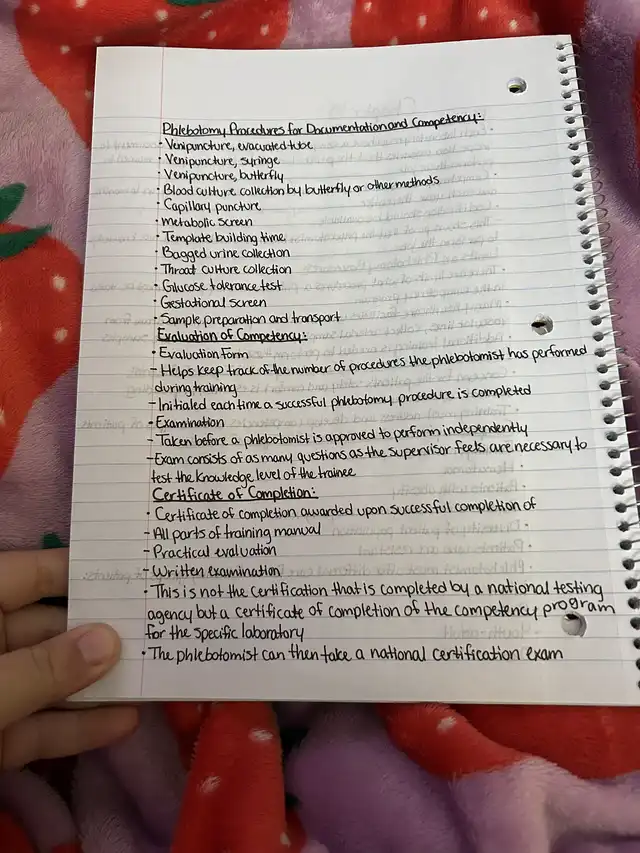 Phlebotomy Procedures for Documentation and Competency:
• Venipuncture, evacuated tube
• Venipuncture, syringe
• Venipuncture, butterfly
• Blood culture collection by butterfly or other methods
• Capillary puncture
• metabolic screen
• Template building time
• Bagged urine collection
• Throat culture collection
• Glucose tolerance test
• Gestational screen
• Sample preparation and transport
Evaluation of Competency:
• Evaluation Form
- Helps keep track of the number of procedures the phlebotomist has performed
during training
- Initialed each time a successful phlebotomy procedure is completed
• Examination
- Taken before a phlebotomist is approved to perform independently
- Exam consists of as many questions as the supervisor feels are necessary to
test the knowledge level of the trainee
Certificate of Completion:
• Certificate of completion awarded upon successful completion of
- All parts of training manual
- Practical evaluation
- Written examination
• This is not the certification that is completed by a national testing
agency but a certificate of completion of the competency program
for the specific laboratory
• The phlebotomist can then take a national certification exam